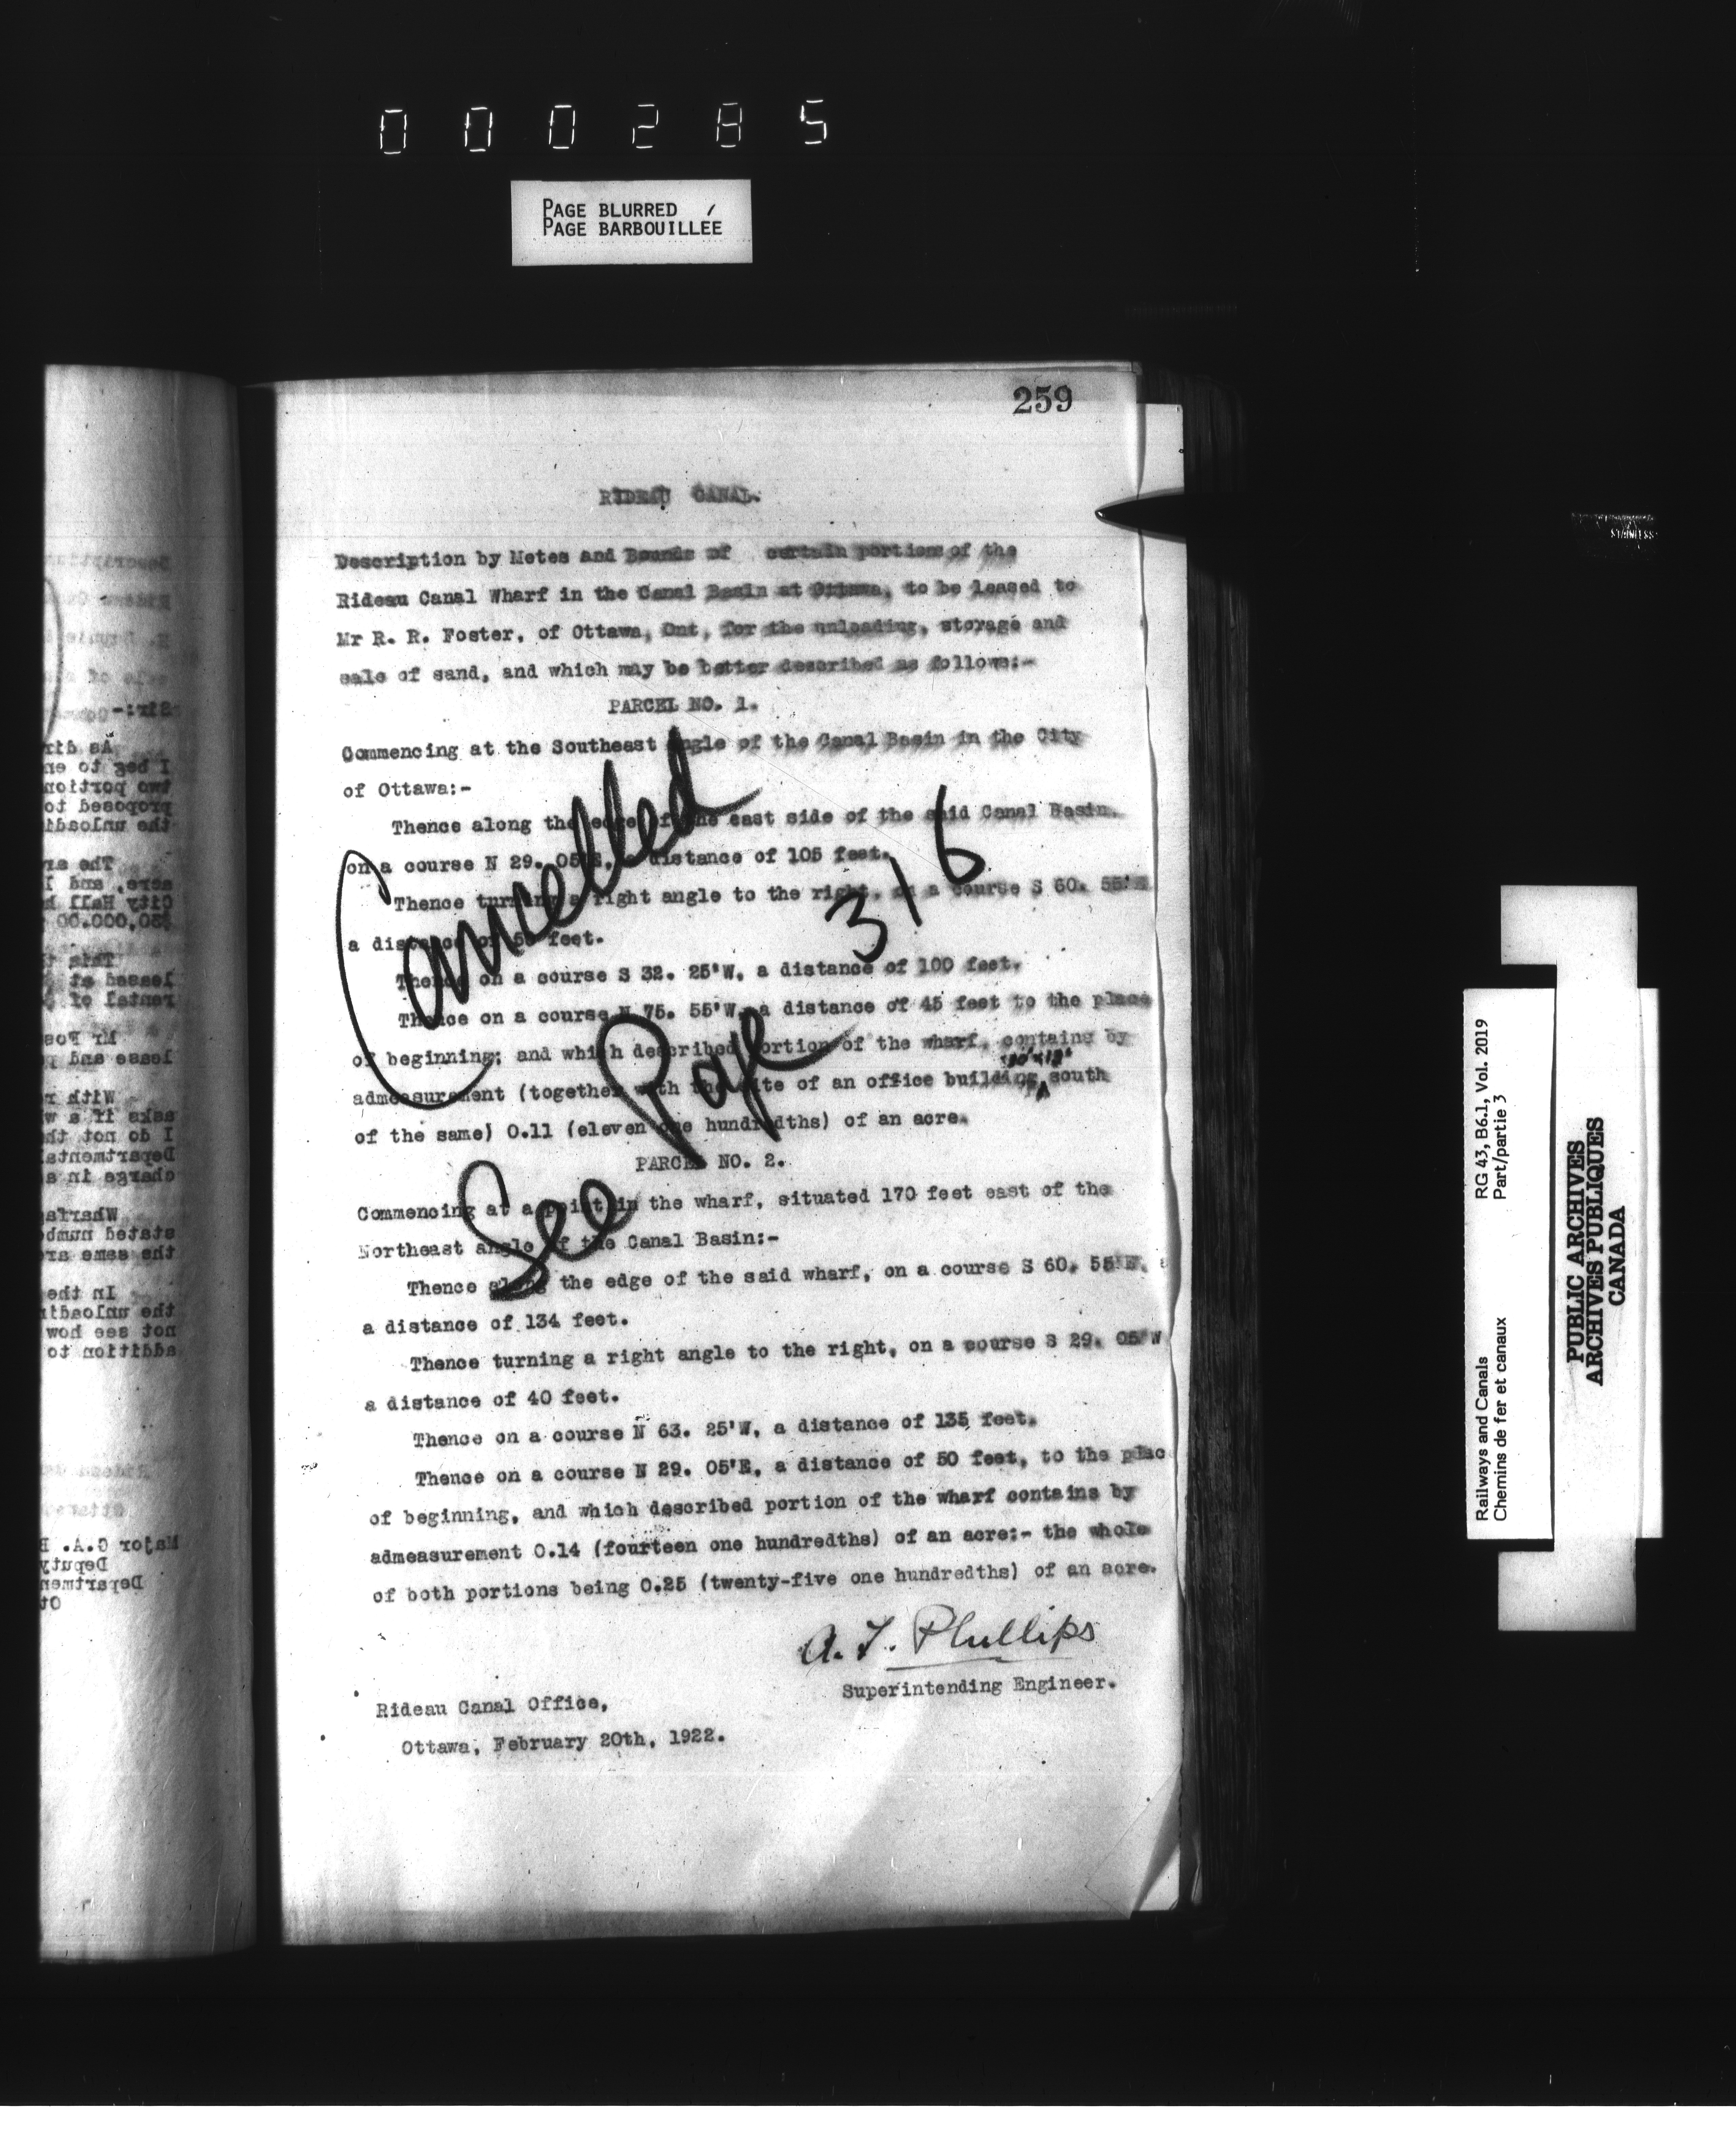 000285
PAGE BLURRED
PAGE BARBOUILLÉE
259
RIDEAU CANAL.
Description by Metes and Bounds of certain portions of the
Rideau Canal Wharf in the Canal Basin at Ottawa, to be leased to
Mr R. R. Foster, of Ottawa, Ont, for the unloading, storage and
sale of sand, and which may be better described as follows:-
PARCEL NO. 1.
Commencing at the Southeast angle of the Canal Basin in the City
of Ottawa:-
Thence along the edge of the east side of the said Canal Basin.
on a course N 29. 05'E, a distance of 105 feet.
Thence turning a right angle to the right, on a course S 60. 55'E
a distance of feet.
Thence on a course S 32. 25'W, a distance of 100 feet.
Thence on a course N 75. 55'W, a distance of 45 feet to the place
of beginning; and which described portion of the wharf, contains by
admeasurement (together with the site of an office building south
of the same) 0.11 (eleven one hundredths) of an acre.
PARCEL NO. 2.
Commencing at a point in the wharf, situated 170 feet east of the
Northeast angle of the Canal Basin:-
Thence along the edge of the said wharf, on a course S 60. 55'E.
a distance of 134 feet.
Thence turning a right angle to the right, on a course S 29. 05'W
a distance of 40 feet.
Thence on a course N 63. 25'W, a distance of 135 feet.
Thence on a course N 29. 05'E, a distance of 50 feet, to the plac
of beginning, and which described portion of the wharf contains by
admeasurement 0.14 (fourteen one hundredths) of an acre:- the whole
of both portions being 0.25 (twenty-five one hundredths) of an acre.
A. T. Phillips
Superintending Engineer.
Rideau Canal Office,
Ottawa, February 20th, 1922.
Cancelled
See Page 316
Railways and Canals RG 43, B6.1, Vol. 2019
Chemins de fer et canaux Part/partie 3
PUBLIC ARCHIVES
ARCHIVES PUBLIQUES
CANADA
STAINLESS